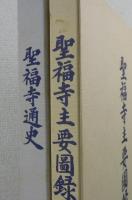 聖福寺通史
聖福寺主要圖録
聖福寺主要圖